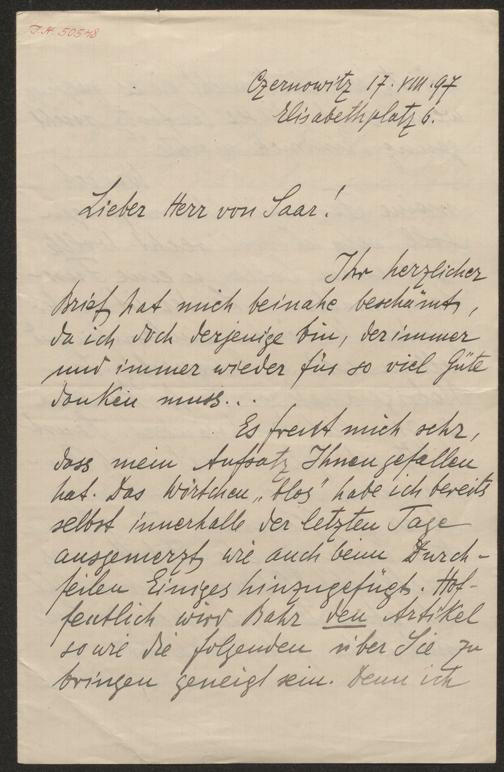 I.N. 50548
Czernowitz 17. VIII. 97
Elisabethplatz 6.
Lieber Herr von Saar!
Ihr herzlicher
Brief hat mich beinahe beschämt,
da ich doch derjenige bin, der immer
und immer wieder für so viel Güte
danken muss...
Es freut mich sehr,
dass mein Aufsatz Ihnen gefallen
hat. Das Wörtchen „blos" habe ich bereits
selbst innerhalb der letzten Tage
ausgemerzt, wie auch beim Durch-
feilen Einiges hinzugefügt. Hof-
fentlich wird Bahr den Artikel
sowie die folgenden über Sie zu
bringen geneigt sein. Denn ich